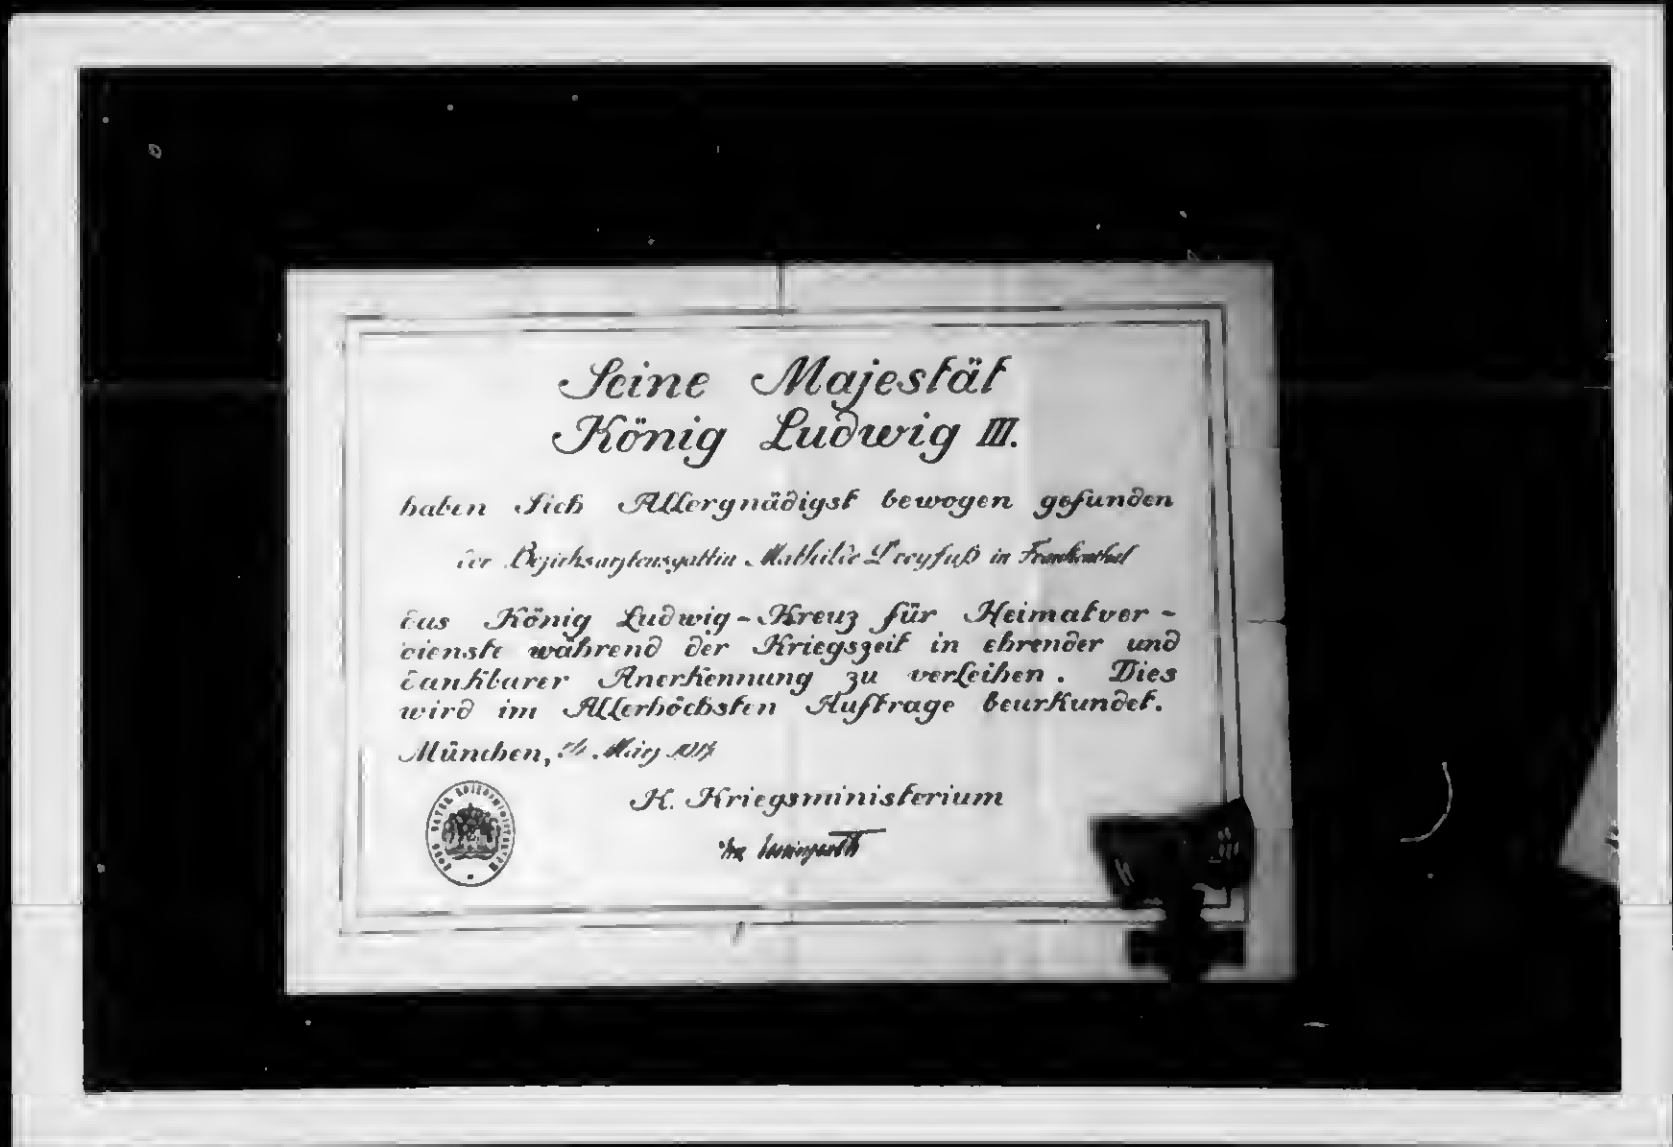 Seine Majestät
König Ludwig III.
haben Sich Allergnädigst bewogen gefunden
der Bezirksarztensgattin Mathilde Dreyfuß in Frankenthal
das König Ludwig-Kreuz für Heimatver-
dienste während der Kriegszeit in ehrender und
dankbarer Anerkennung zu verleihen. Dies
wird im Allerhöchsten Auftrage beurkundet.
München, März
K. Kriegsministerium